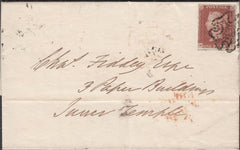 Chas. Fiddey Esqre
3 Paper Buildings
Inner Temple